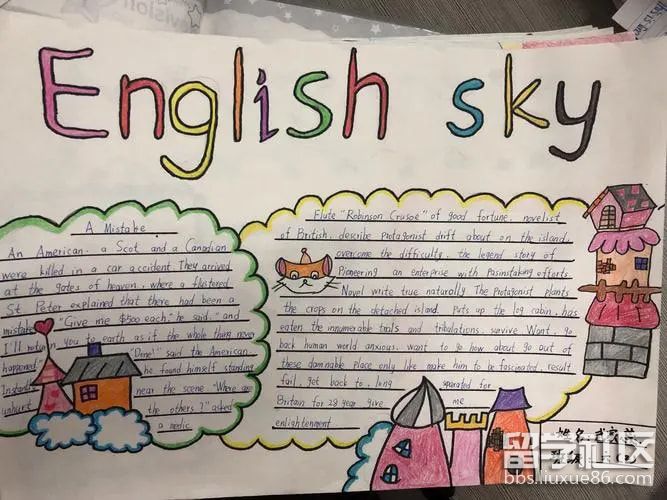 English sky
A Mistake
An American, a Scot and a Canadian
were killed in a car accident. They arrived
at the gates of heaven, where a flustered
St Peter explained that there had been a
mistake "Give me $500 each," he said, "and
I'll return you to earth as if the whole thing never
happened "Done!" said the American
Instantly he found himself standing
unhurt near the scene "Where are
the others?" asked
a medic.
Flute "Robinson Crusoe" of good fortune, novelist
of British, describe protagonist drift about on the island,
overcome the difficulty, the legend story of
Pioneering an enterprise with Painstaking efforts
Novel write true naturally The Protagonist plants
the crops on the detached island, puts up the log cabin, has
eaten the innumerable trials and tribulations, survive Want, go
back human world anxious, want to go how about go out of
these damnable place only like make him to be fascinated, result
fail, get back to, long separated for
Britain for 28 year give me
enlightenment
姓名
留学社区
bbs.liuxue86.com